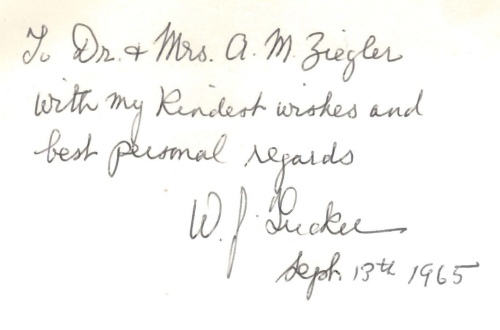 To Dr. & Mrs. A. M. Ziegler
with my kindest wishes and
best personal regards
W. J. Tucker
Sept. 13th 1965